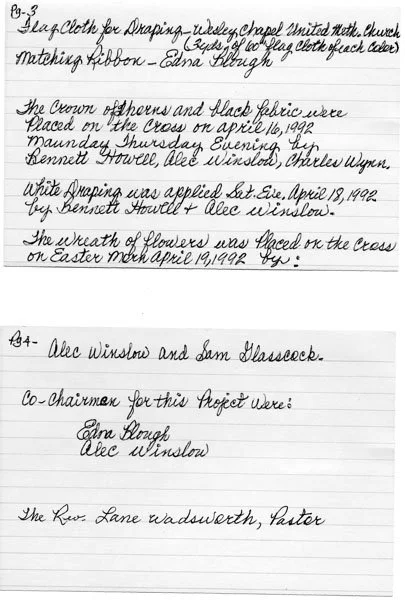 Pg-3
Flag Cloth for Draping - Wesley Chapel United Meth. Church
(3 yds. of 60" flag cloth of each color)
Matching Ribbon - Edna Plough
The Crown of thorns and black fabric were
Placed on the Cross on april 16, 1992
Maunday Thursday Evening by
Bennett Howell, Alec Winslow, Charles Wynn.
White Draping was applied Sat. Eve. April 18, 1992
by Bennett Howell + Alec Winslow.
The wreath of flowers was Placed on the Cross
on Easter Morn April 19, 1992 by:
Pg 4-
Alec Winslow and Sam Glasscock.
Co-Chairman for this Project were:
Edna Plough
Alec Winslow
The Rev. Lane Wadsworth, Pastor